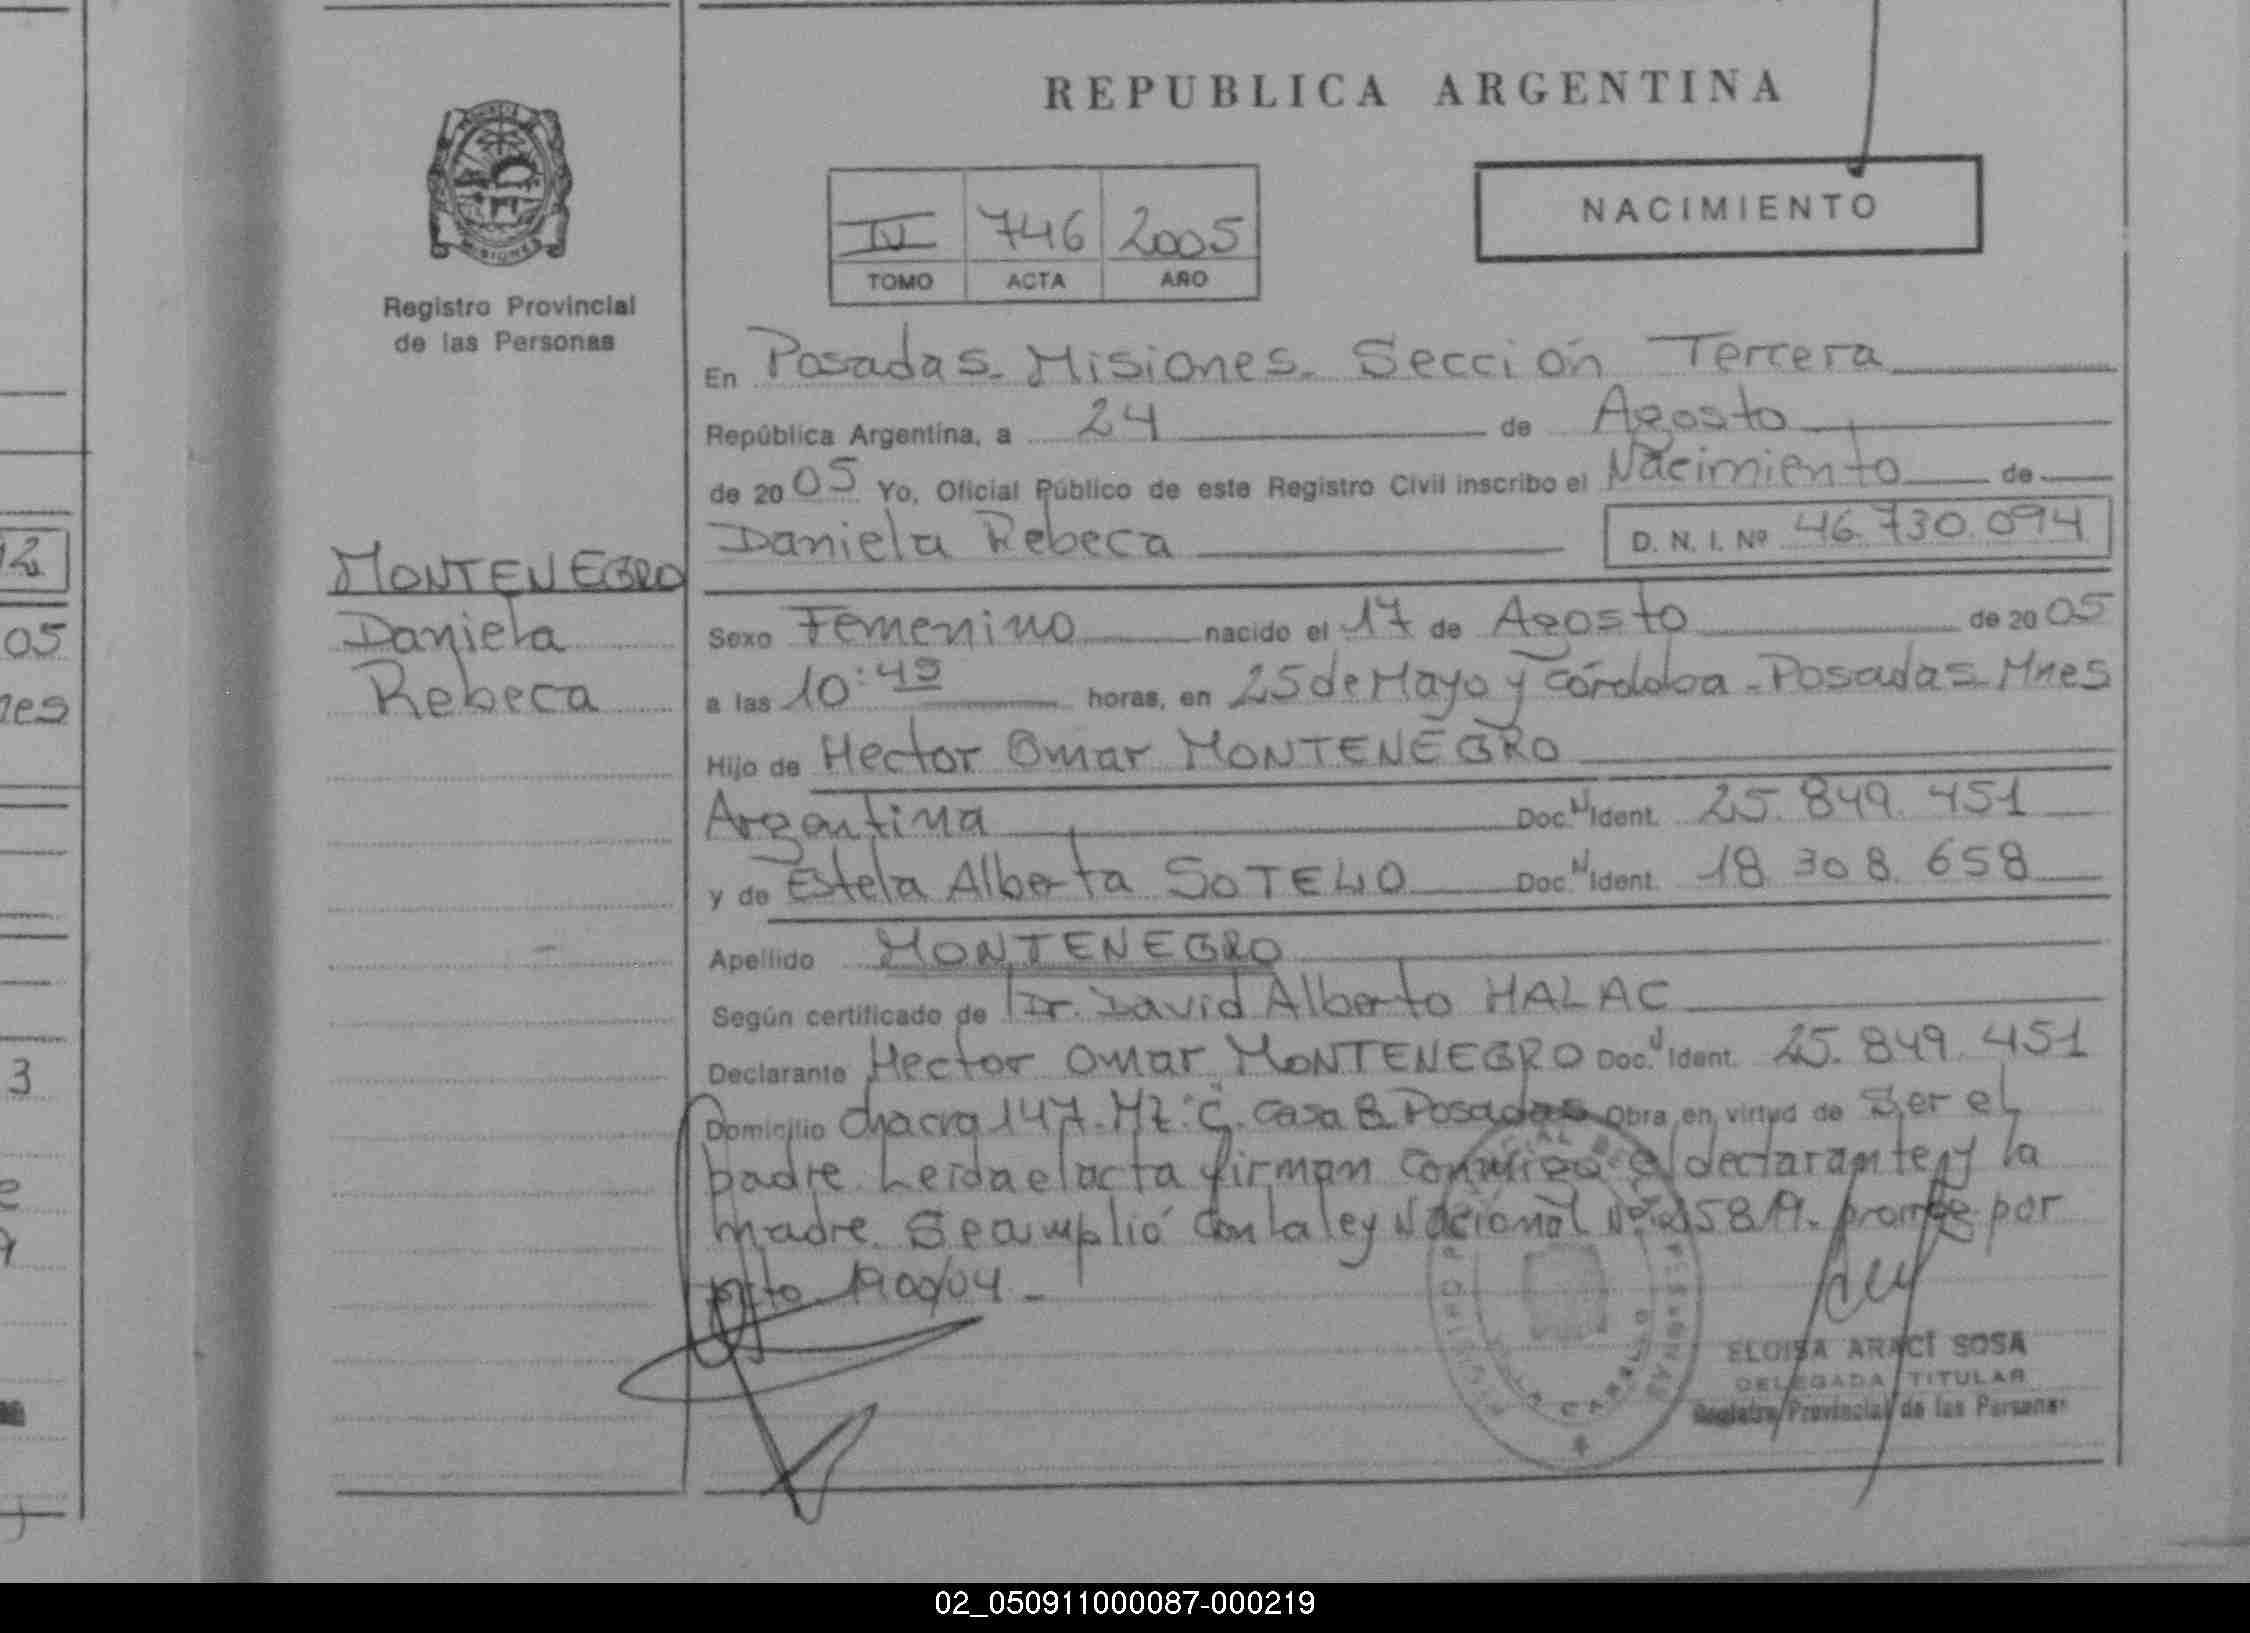 REPUBLICA ARGENTINA
NACIMIENTO
IV 746 2005
TOMO ACTA AÑO
Registro Provincial
de las Personas
MONTENEGRO
Daniela
Rebeca
En Posadas - Misiones - Sección Tercera
República Argentina, a 24 de Agosto
de 2005 Yo, Oficial Público de este Registro Civil inscribo el Nacimiento de
Daniela Rebeca D. N. I. Nº 46.730.094
Sexo Femenino nacido el 17 de Agosto de 2005
a las 10:45 horas, en 25 de Mayo y Córdoba - Posadas - Mnes
Hijo de Hector Omar MONTENEGRO
Argentina Doc. Ident. 25.849.451
y de Estela Alberta SOTELO Doc. Ident. 18.308.658
Apellido MONTENEGRO
Según certificado de Dr. David Alberto HALAC
Declarante Hector Omar MONTENEGRO Doc. Ident. 25.849.451
Domicilio chacra 147. Mz. "C". Casa 8. Posadas Obra en virtud de Ser el
padre. Leida el acta firman conmigo el declarante y la
madre. Se cumplió con la ley Nacional Nº 25819. prorrog por
Dto 1900/04 -
ELOISA ARACI SOSA
DELEGADA TITULAR
Registro Provincial de las Personas
12
05
nes
3
02_050911000087-000219